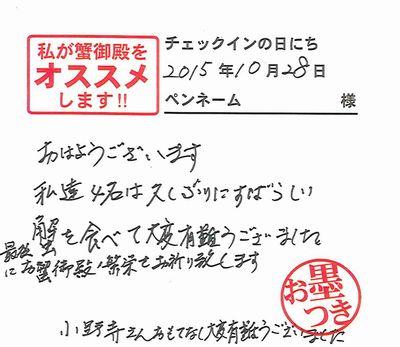 私が蟹御殿を
オススメ
します!!
チェックインの日にち
2015年10月28日
ペンネーム 様
おはようございます
私達4名は久しぶりにすばらしい
蟹を食べて大変有難うございました
最後に 蟹御殿ノ繁栄をお祈り致します
お墨つき
小野寺さんおもてなし大変有難うございました